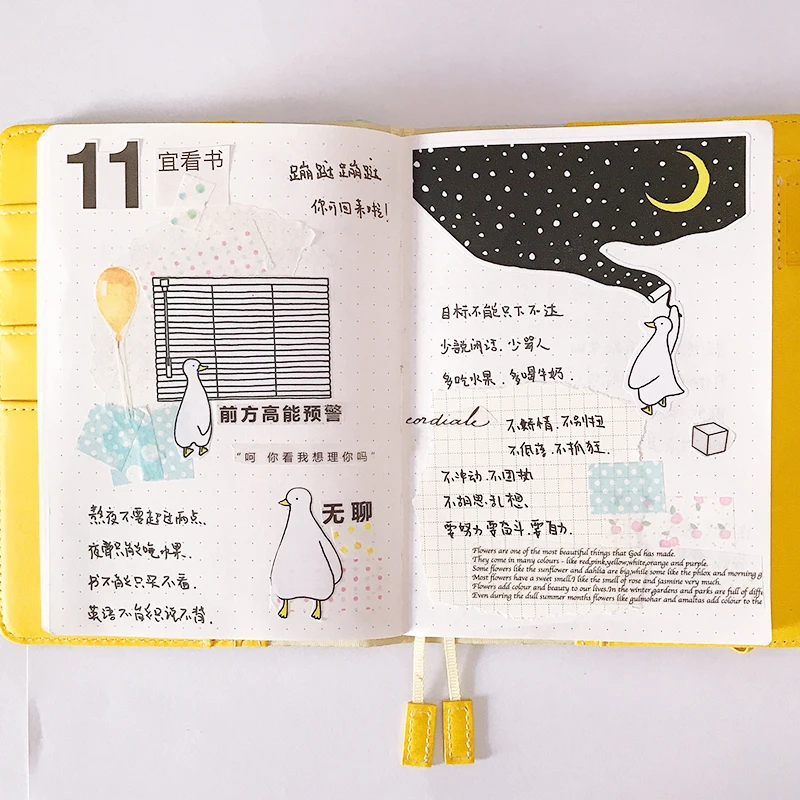 11
宜看书
蹦跶蹦跶
你可回来啦!
前方高能预警
“呵 你看我想理你吗”
无聊
熬夜不要超过两点、
夜宵只能吃水果.
书不能只买不看.
英语不能只说不背.
目标不能只下不达
少说闲话.少骂人
多吃水果.多喝牛奶.
cordiale
不矫情.不别扭
不低落.不抓狂.
不冲动.不固执
不胡思乱想.
要努力要奋斗.要自力.
Flowers are one of the most beautiful things that God has made.
They come in many colours - like red,pink,yellow,white,orange and purple.
Some flowers like the sunflower and dahlia are big,while some like the phlox and morning g
Most flowers have a sweet smell.I like the smell of rose and jasmine very much.
Flowers add colour and beauty to our lives.In the winter,gardens and parks are full of diff
Even during the dull summer months flowers like gulmohar and amaltas add colour to the